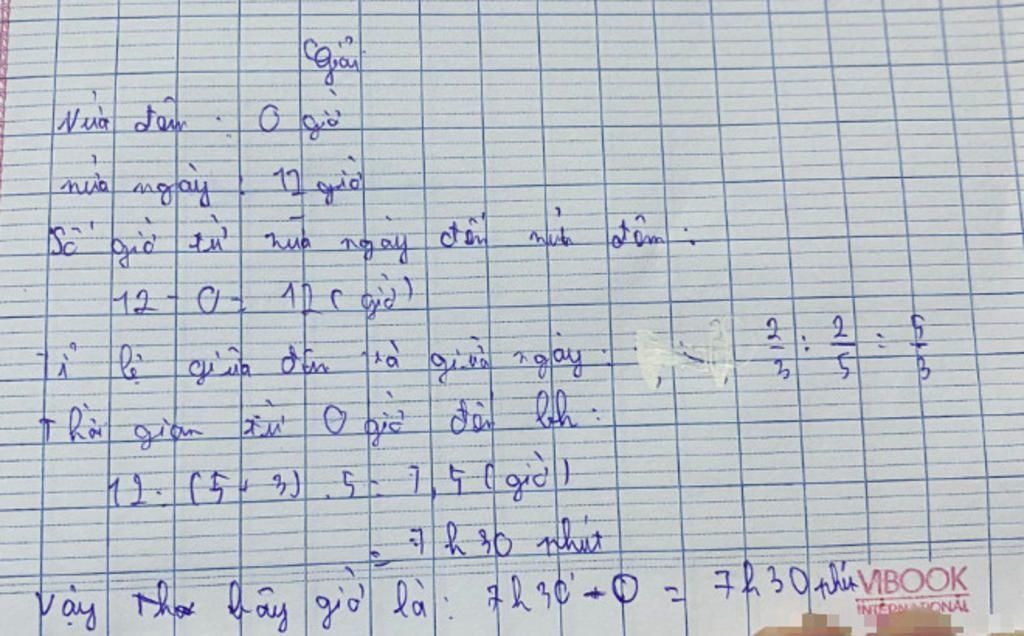 Giải
Nửa đêm : 0 giờ
nửa ngày : 12 giờ
Số giờ từ nửa ngày đến nửa đêm :
12 - 0 = 12 ( giờ )
Tỉ lệ giữa đêm và giữa ngày : 2/3 : 2/5 = 5/3
Thời gian từ 0 giờ đến bh :
12 : (5 + 3) . 5 = 7,5 ( giờ )
= 7 h 30 phút
Vậy bây giờ là : 7h 30 + 0 = 7h 30 phút
VIBOOK
INTERNATIONAL